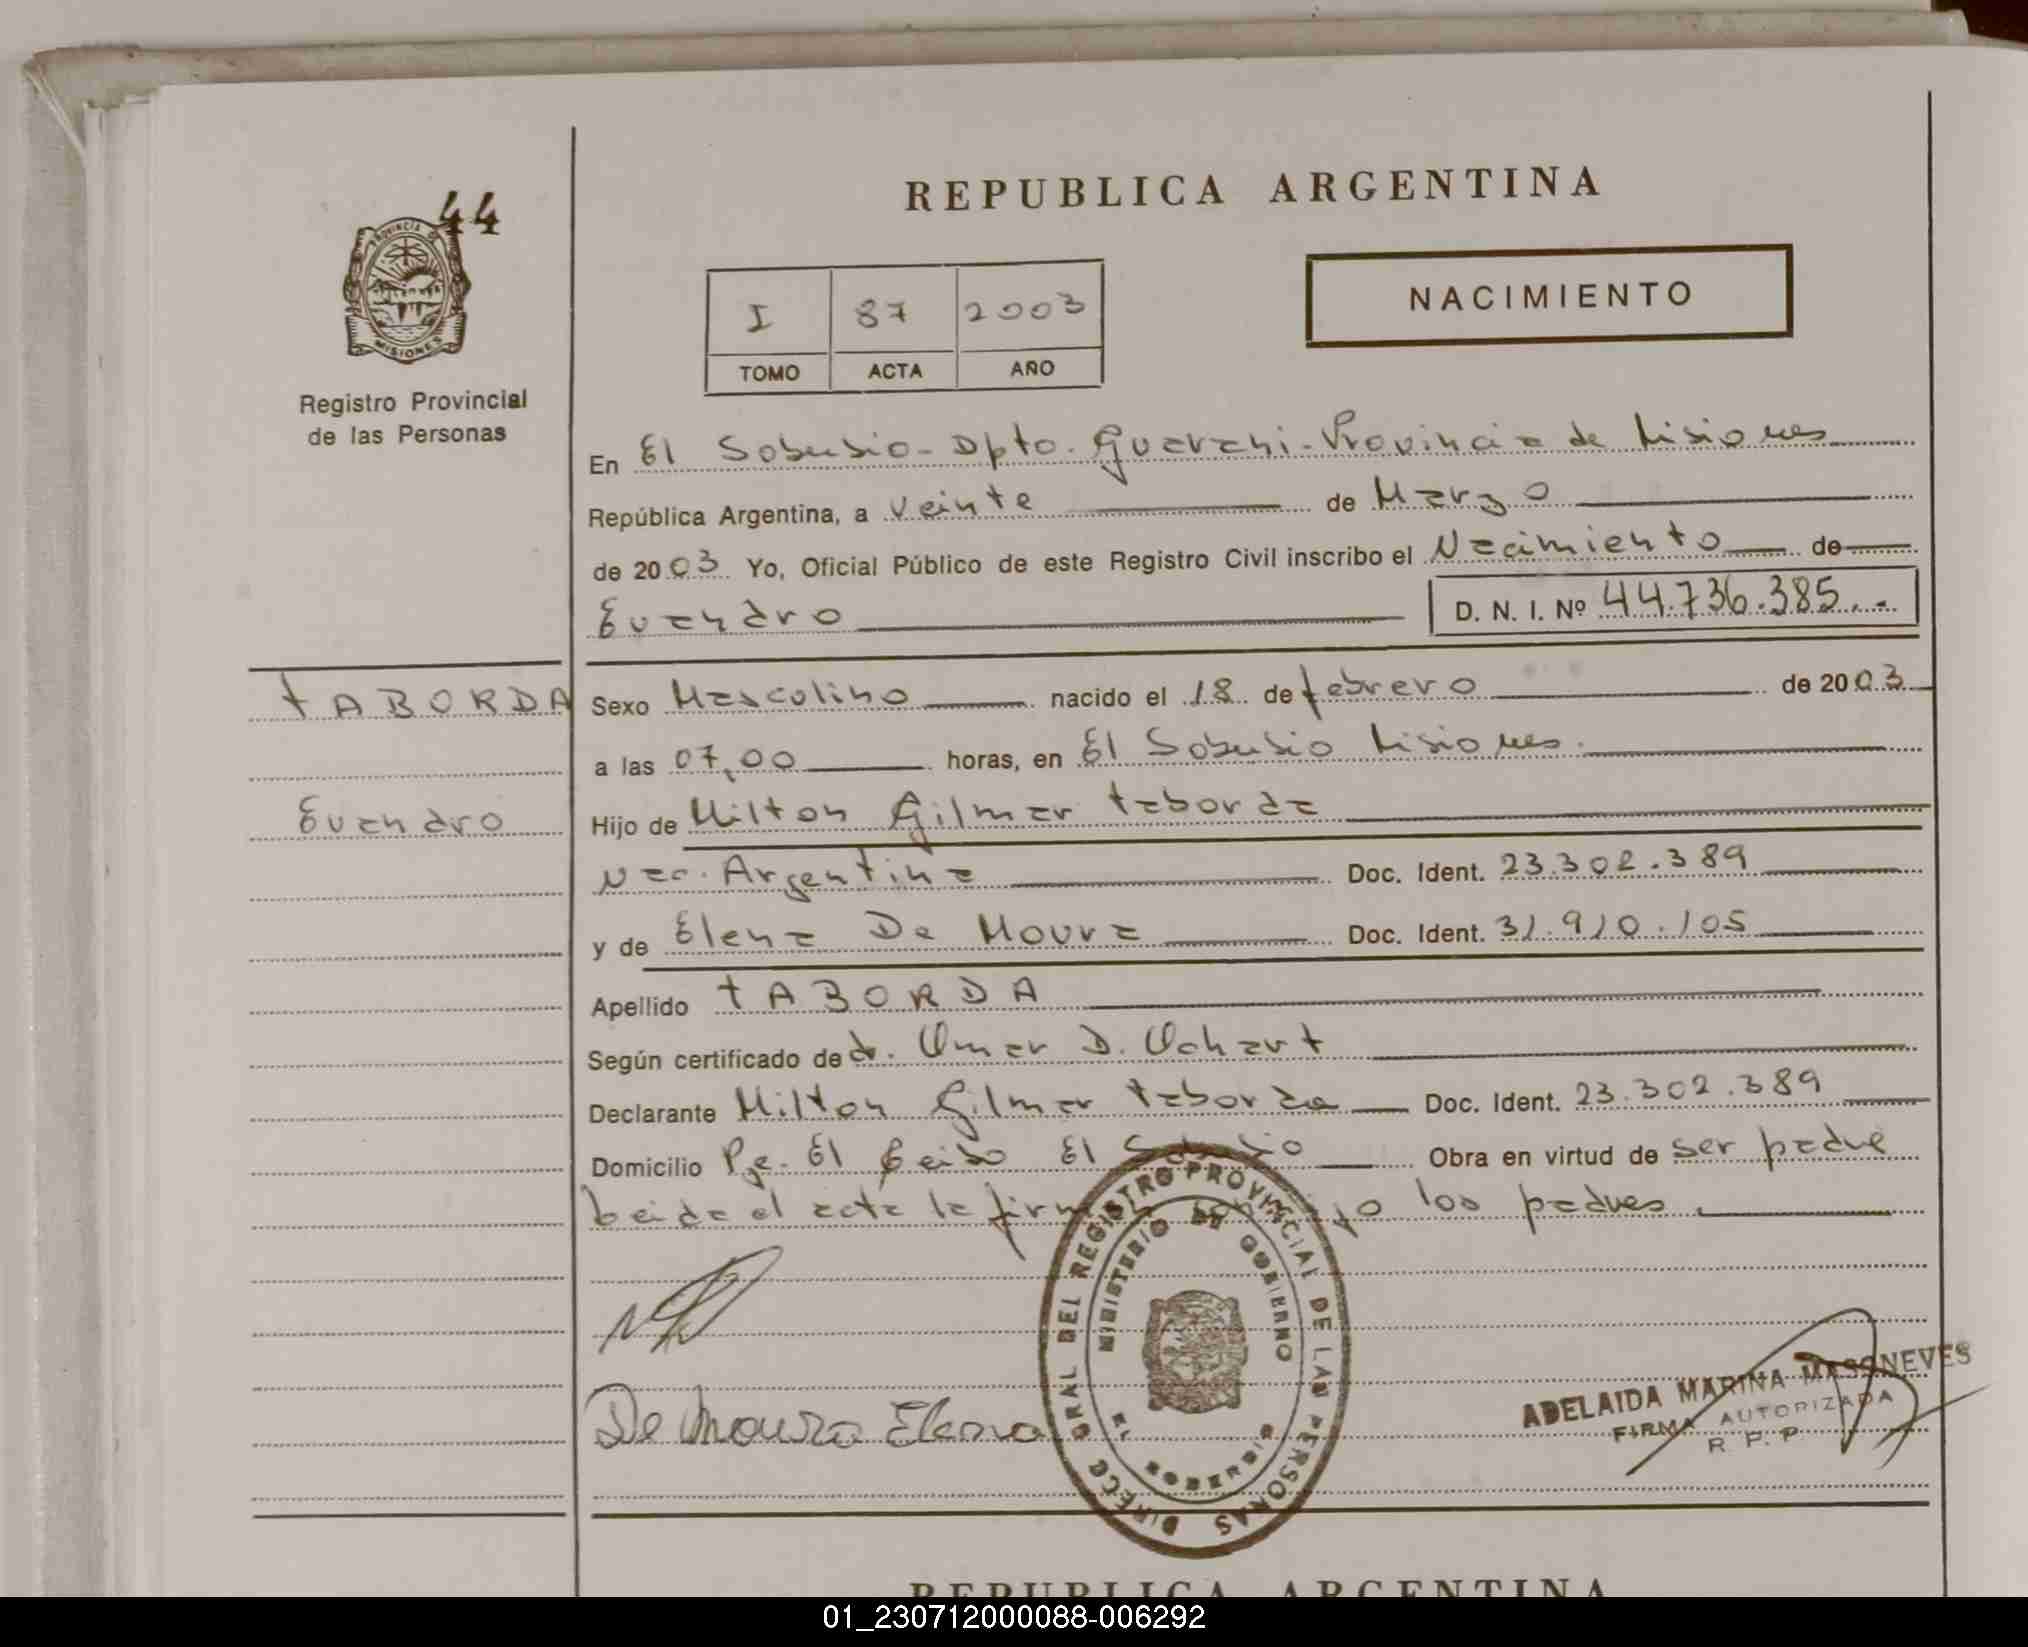 44
PROVINCIA DE
MISIONES
Registro Provincial
de las Personas
REPUBLICA ARGENTINA
I 87 2003
TOMO ACTA AÑO
NACIMIENTO
En El Soberbio - Dpto. Guarani - Provincia de Misiones
República Argentina, a Veinte de Marzo
de 2003 Yo, Oficial Público de este Registro Civil inscribo el Nacimiento de
Evandro D. N. I. Nº 44.736.385.-
TABORDA
Evandro
Sexo Masculino nacido el 18 de febrero de 2003
a las 07,00 horas, en El Soberbio Misiones.
Hijo de Milton Gilmar Taborda
Nac. Argentina Doc. Ident. 23.302.389
y de Elena De Moura Doc. Ident. 31.910.105
Apellido TABORDA
Según certificado de dr. Omar D. Ochart
Declarante Milton Gilmar Taborda Doc. Ident. 23.302.389
Domicilio Pje. El Ceibo El Soberbio Obra en virtud de ser padre
Leida el acta la firman conmigo los padres
De Moura Elena
DIRECC GRAL DEL REGISTRO PROVINCIAL DE LAS PERSONAS
MINISTERIO DE GOBIERNO
EL SOBERBIO
ADELAIDA MARINA MASSNEVES
FIRMA AUTORIZADA
R. P. P.
REPUBLICA ARGENTINA
01_230712000088-006292